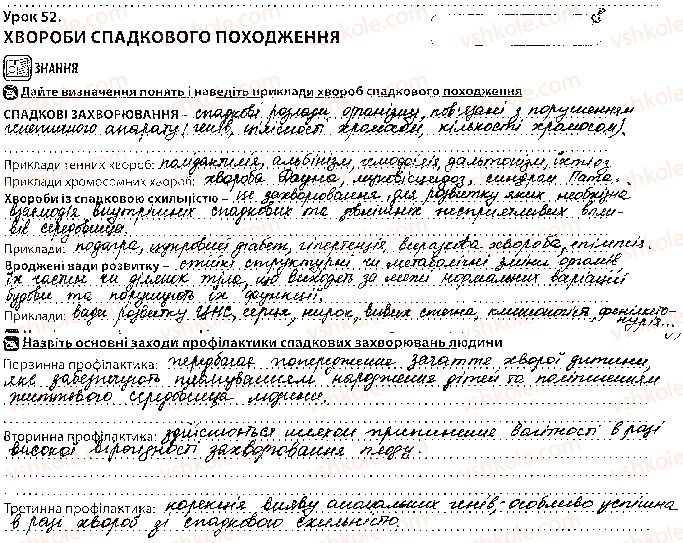 Урок 52.
ХВОРОБИ СПАДКОВОГО ПОХОДЖЕННЯ
ЗНАННЯ
Дайте визначення понять і наведіть приклади хвороб спадкового походження
СПАДКОВІ ЗАХВОРЮВАННЯ – спадкові розлади організму, пов'язані з порушенням
генетичного апарату (генів, цілісності хромосом, кількості хромосом).
Приклади генних хвороб: полідактилія, альбінізм, гемофілія, дальтонізм, іхтіоз
Приклади хромосомних хвороб: хвороба Дауна, муковісцидоз, синдром Пата.
Хвороби із спадковою схильністю – це захворювання, для розвитку яких необхідна
взаємодія внутрішніх спадкових та зовнішніх несприятливих впли-
вів середовища.
Приклади: подагра, цукровий діабет, гіпертензія, виразкова хвороба, епілепсія.
Вроджені вади розвитку – стійкі структурні чи метаболічні зміни органів
їх частин чи ділянок тіла, що виходять за межі нормальних варіацій
будови та порушують їх функції.
Приклади: вади розвитку ЦНС, серця, нирок, вивих стегна, клишоногість, фенілкето-
нурія...
Назвіть основні заходи профілактики спадкових захворювань людини
Первинна профілактика: передбачає попередження зачаття хворої дитини,
яке забезпечують плануванням народження дітей та поліпшенням
життєвого середовища людини.
Вторинна профілактика: здійснюється шляхом припинення вагітності в разі
високої вірогідності захворювання плоду.
Третинна профілактика: корекція вияву аномальних генів; особливо успішна
в разі хвороб зі спадковою схильністю.
vshkole.com